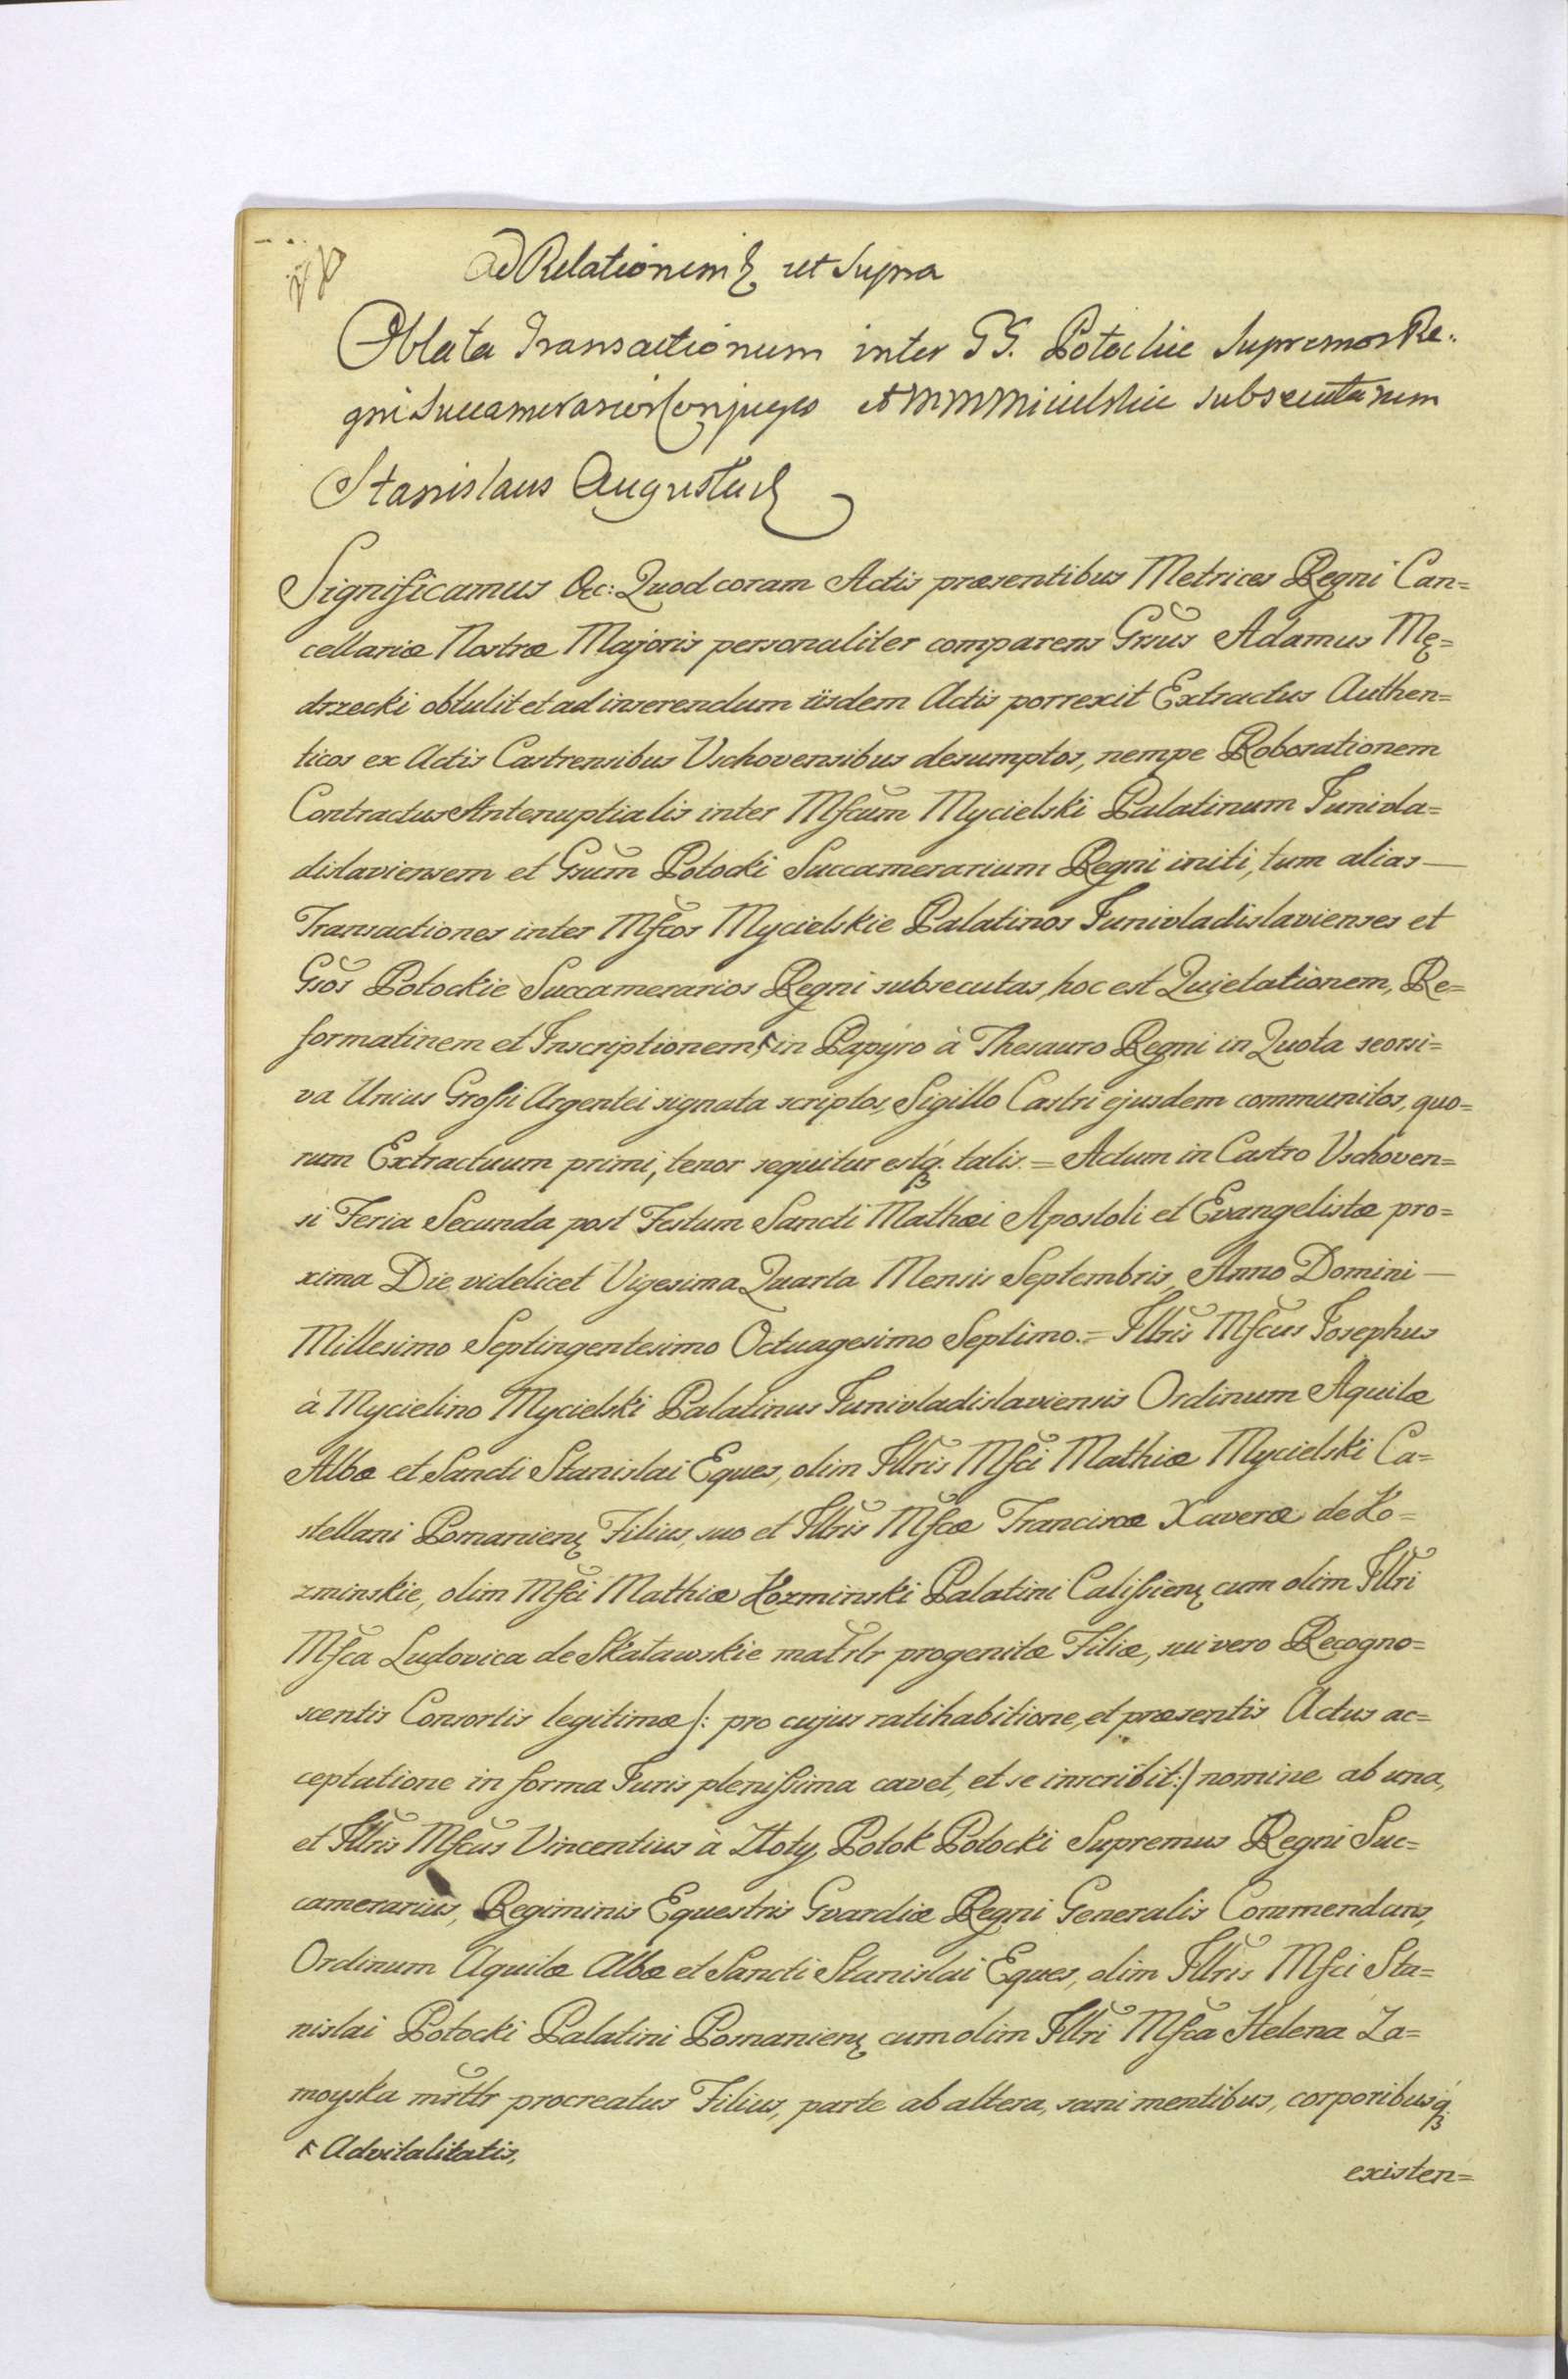 ad Relationem ut Supra
Oblata Transactionum inter GG. Potockie Supremos Re-
gni Succamerarios Conjuges et MMM Micielskie subsecutarum
Stanislaus Augustus
Significamus &c: Quod coram Actis præsentibus Metrices Regni Can=
cellariæ Nostræ Majoris personaliter comparens Grsus Adamus Mę=
drzecki obtulit et ad inserendum iisdem Actis porrexit Extractus Authen=
ticos ex Actis Castrensibus Vschovensibus desumptos, nempe Roborationem
Contractus Antenuptialis inter Mfcum Mycielski Palatinum Junivla=
dislaviensem et Gsum Potocki Succamerarium Regni initi, tum alias —
Transactiones inter Mfcos Mycielskie Palatinos Junivladislavienses et
Gsos Potockie Succamerarios Regni subsecutas, hoc est Quietationem, Re=
formatinem et Inscriptionem, in Papyro à Thesauro Regni in Quota seorsi=
va Unius Grossi Argentei signata scriptos, Sigillo Castri ejusdem communitos, quo=
rum Extractuum primi, tenor sequitur estq talis. = Actum in Castro Vschoven=
si Feria Secunda post Festum Sancti Mathæi Apostoli et Evangelistæ pro=
xima Die videlicet Vigesima Quarta Mensis Septembris, Anno Domini —
Millesimo Septingentesimo Octuagesimo Septimo. = Illris Mfcus Josephus
à Mycielino Mycielski Palatinus Junivladislaviensis Ordinum Aquilæ
Albæ et Sancti Stanislai Eques, olim Illris Mfci Mathiæ Mycielski Ca=
stellani Posnanien Filius, suo et Illris Mfcæ Franciscæ Xaveræ de Ko=
zminskie, olim Mfci Mathiæ Kozminski Palatini Calissien cum olim Illri
Mfca Ludovica de Skaławskie matrlr progenitæ Filiæ, sui vero Recogno=
scentis Consortis legitimæ /: pro cujus ratihabitione, et præsentis Actus ac=
ceptatione in forma Juris plenissima cavet, et se inscribit :/ nomine ab una,
et Illris Mfcus Vincentius à Złoty Potok Potocki Supremus Regni Suc=
camerarius, Regiminis Equestris Gvardiæ Regni Generalis Commendans,
Ordinum Aquilæ Albæ et Sancti Stanislai Eques, olim Illris Mfci Sta=
nislai Potocki Palatini Posnanien cum olim Illri Mfca Helena Za=
moyska mrtlr procreatus Filius, parte ab altera, sani mentibus, corporibusq
Advitalitatis,
existen=